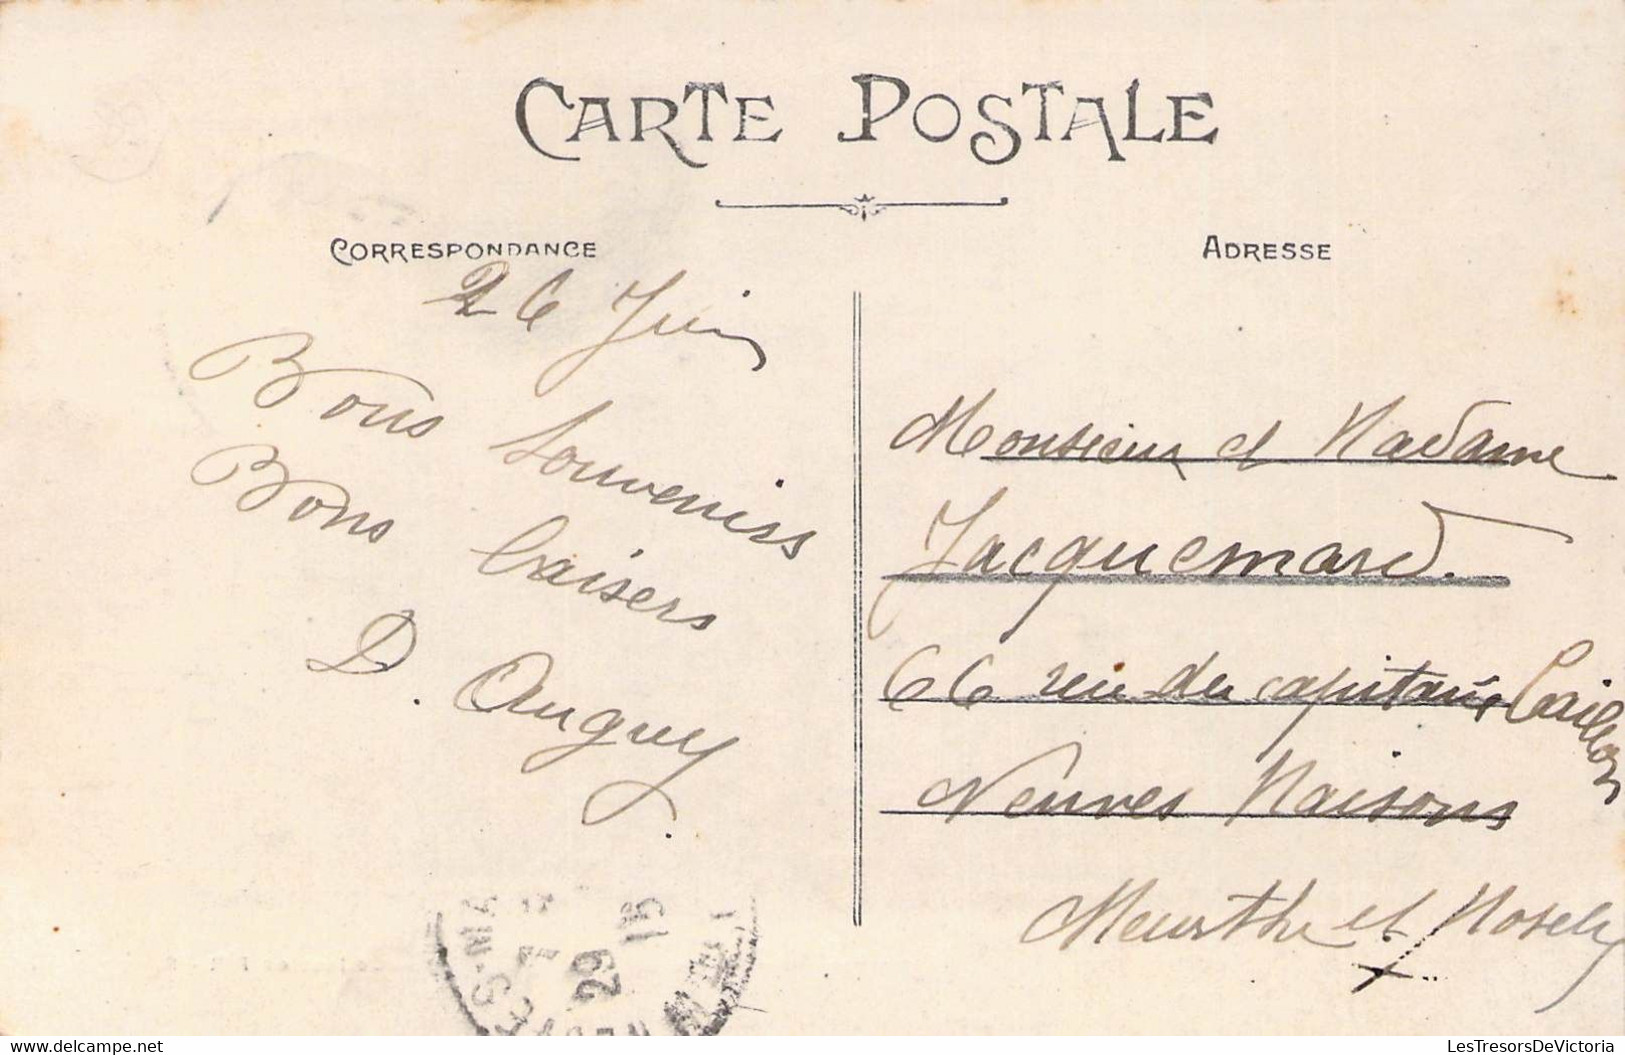 CARTE POSTALE
CORRESPONDANCE
26 Juin
Bons souvenirs
Bons baisers
D. Anguy
ADRESSE
Monsieur et Madame
Jacquemard.
66 rue du capitaine Caillon
Neuves Maisons
Meurthe et Moselle
29
15
LesTresorsDeVictoria
delcampe.net